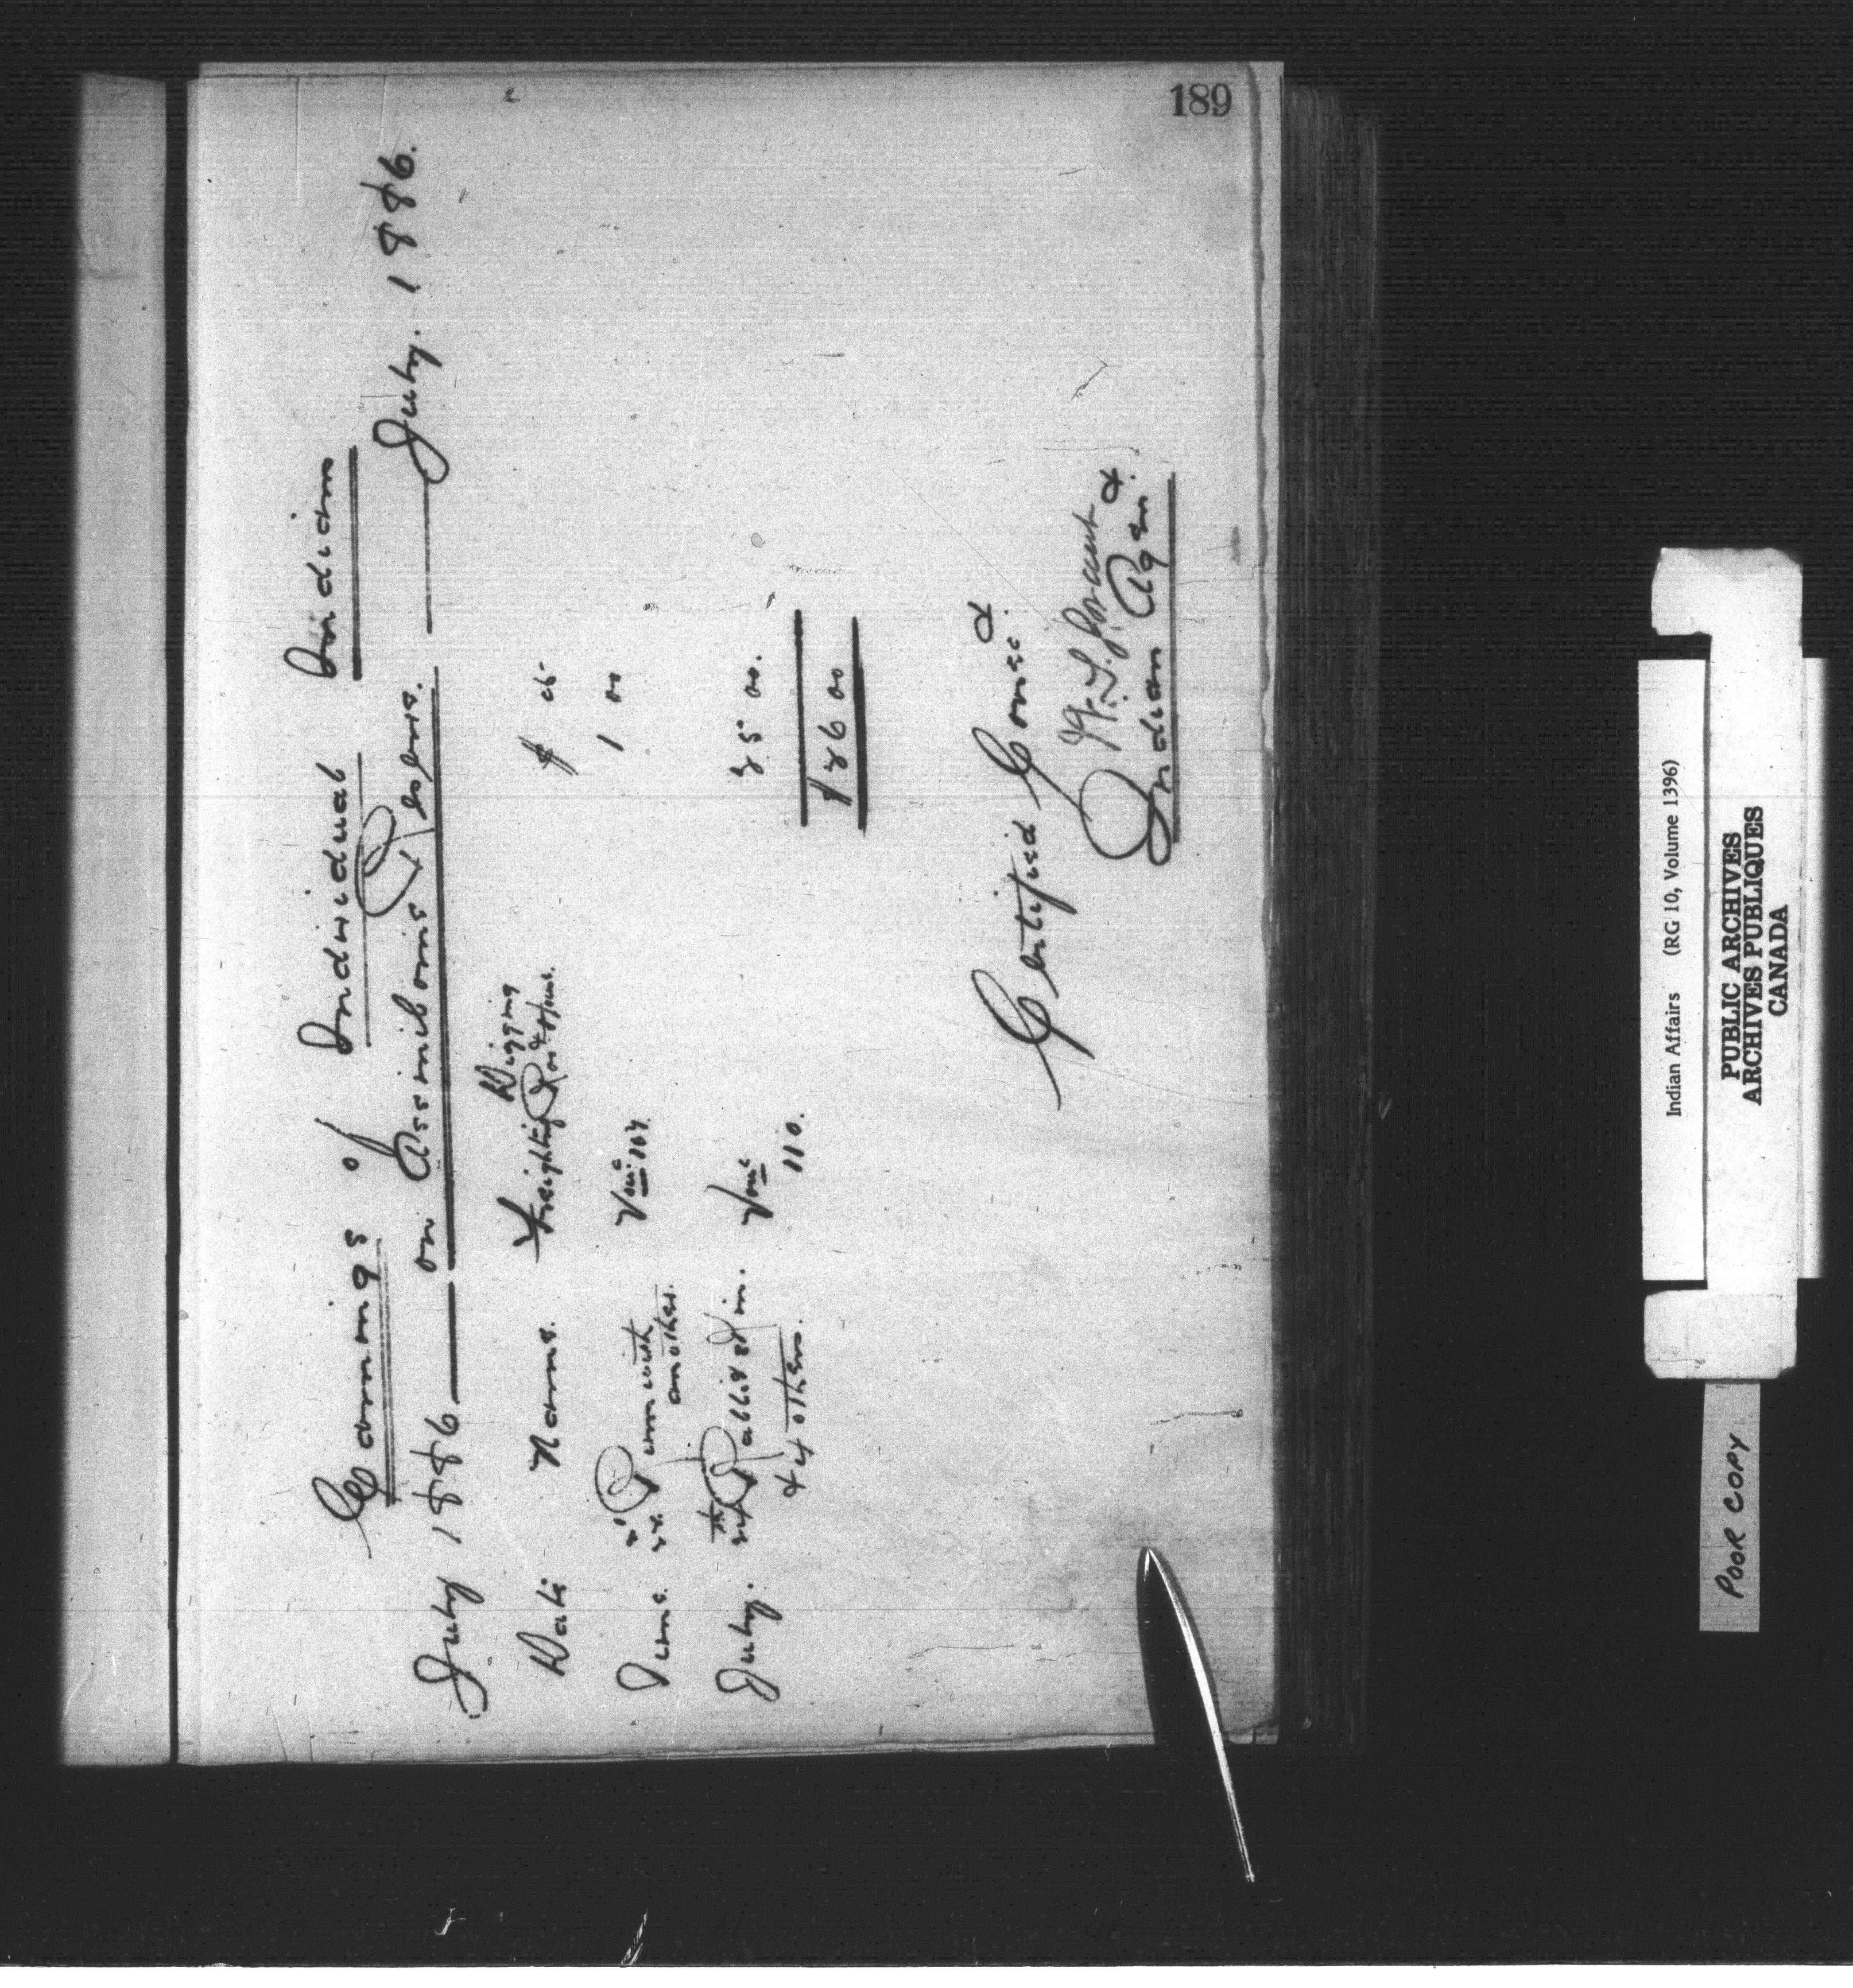 189
Earnings of Individual Indian
July 1886 on Assiniboine Reserve. July. 1886.
Digging
Date Name. Freighting Root &
$ cts
June. 22. with Vou:c 107. 1 00
another.
July. Vou:c 25 00.
& 4 others. 110.
$26 00
Certified Correct
W. S. Grant
Indian Agent.
Indian Affairs (RG 10, Volume 1396)
PUBLIC ARCHIVES
ARCHIVES PUBLIQUES
CANADA
POOR COPY